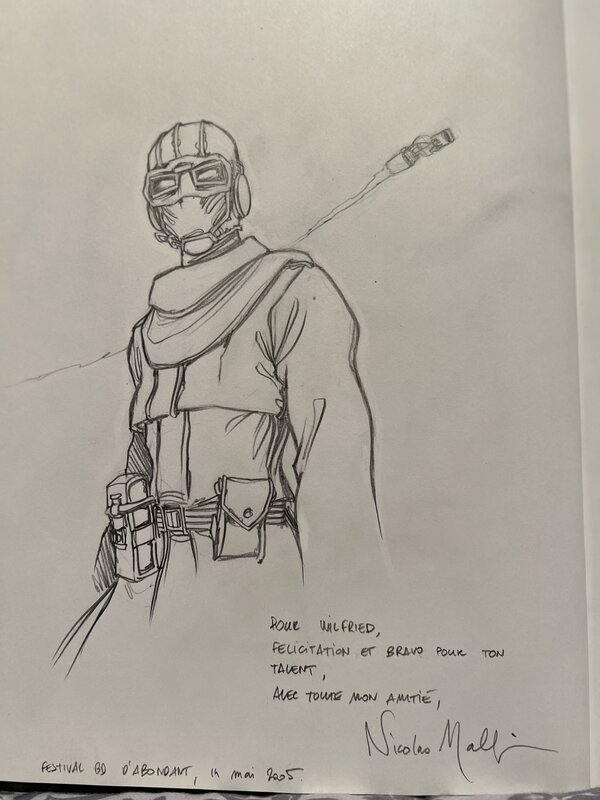 POUR WILFRIED,
FELICITATION ET BRAVO POUR TON
TALENT,
AVEC TOUTE MON AMITIÉ,
Nicolas Malfin
FESTIVAL BD D'ABONDANT, 14 mai 2005.